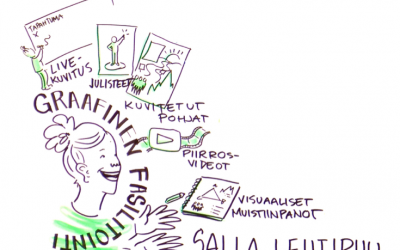 TAPAHTUMA
X
LIVE-
KUVITUS
JULISTEET
KUVITETUT
POHJAT
GRAAFINEN FASILITOINTI
PIIRROS-
VIDEOT
VISUAALISET
MUISTIINPANOT
SALLA LEHTIPUU